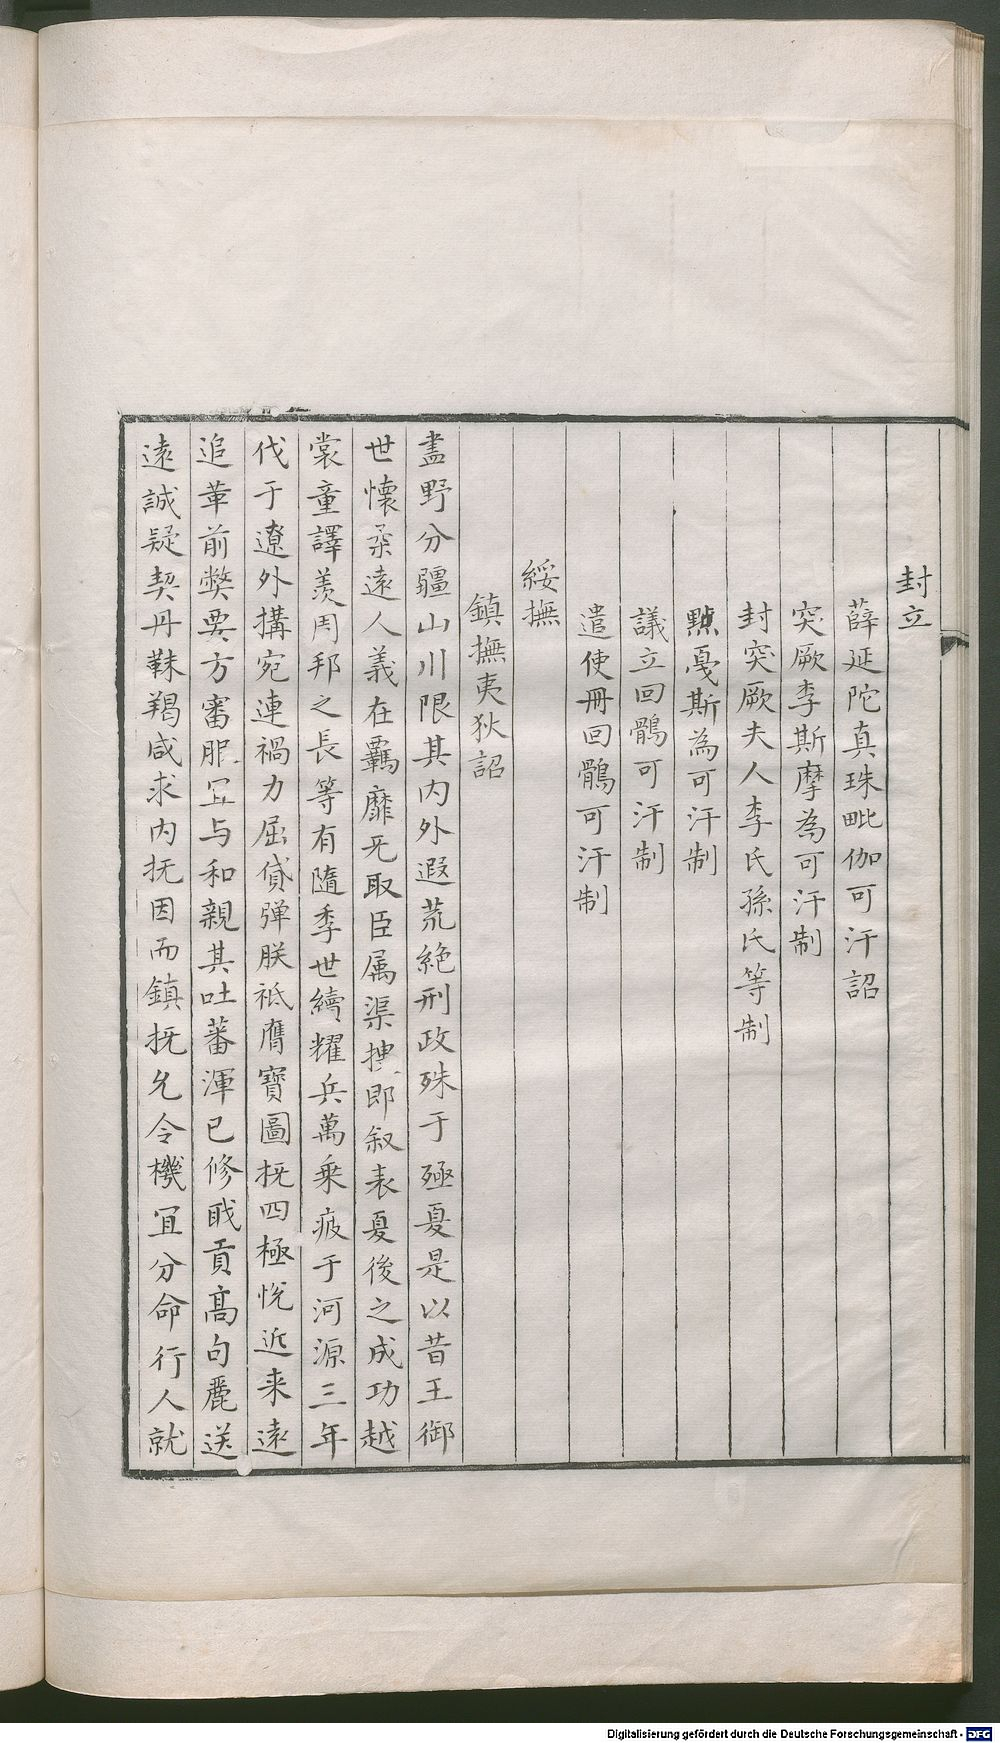 封立
薛延陀真珠毗伽可汗詔
突厥李斯摩為可汗制
封突厥夫人李氏孫氏等制
黠戛斯為可汗制
議立回鶻可汗制
遣使冊回鶻可汗制
綏撫
鎮撫夷狄詔
畫野分疆山川限其內外遐荒絶刑政殊于殛夏是以昔王御
世懷柔遠人義在羈靡无取臣属渠搜即叙表夏後之成功越
裳童譯羨周邦之長等有隨季世續耀兵萬乗疲于河源三年
代于遼外搆宛連禍力屈貸弹朕祗膺寶圖抚四極恱近来遠
追革前獘要方審服宜与和親其吐蕃渾已修戢貢髙句麗送
遠誠疑契丹靺羯咸求内抚因而鎮抚允令機宜分命行人就
Digitalisierung gefördert durch die Deutsche Forschungsgemeinschaft - DFG